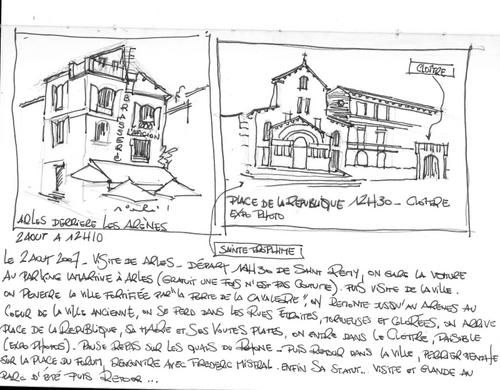 CLOÎTRE
BRASSERIE
L'AFICION
ARLES DERRIERE LES ARÈNES
2 AOUT A 12H10
PLACE DE LA REPUBLIQUE 12H30 - CLOITRE
EXPO PHOTO
SAINTE TROPHIME
LE 2 AOUT 2007 - VISITE DE ARLES - DÉPART 11H30 DE SAINT REMY, ON GARE LA VOITURE
AU PARKING LAMARTINE À ARLES (GRATUIT UNE FOIS N'EST PAS COUTUME) PUIS VISITE DE LA VILLE.
ON PENETRE LA VILLE FORTIFIÉE PAR "LA PORTE DE LA CAVALERIE", ON REMONTE JUSQU'AU ARENES AU
COEUR DE LA VILLE ANCIENNE, ON SE PERD DANS LES RUES ÉTROITES, TORTUEUSES ET COLORÉES, ON ARRIVE
PLACE DE LA REPUBLIQUE, SA MAIRIE ET SES VOUTES PLATES, ON ENTRE DANS LE CLOITRE, PAISIBLE
(EXPO PHOTOS). PAUSE REPAS SUR LES QUAIS DU RHONE - PUIS RETOUR DANS LA VILLE, PERRIER MENTHE
SUR LA PLACE DU FORUM, RENCONTRE AVEC FREDERIC MISTRAL. ENFIN SA STATUT... VISITE ET GLANDE AU
PARC D'ÉTÉ PUIS RETOUR...